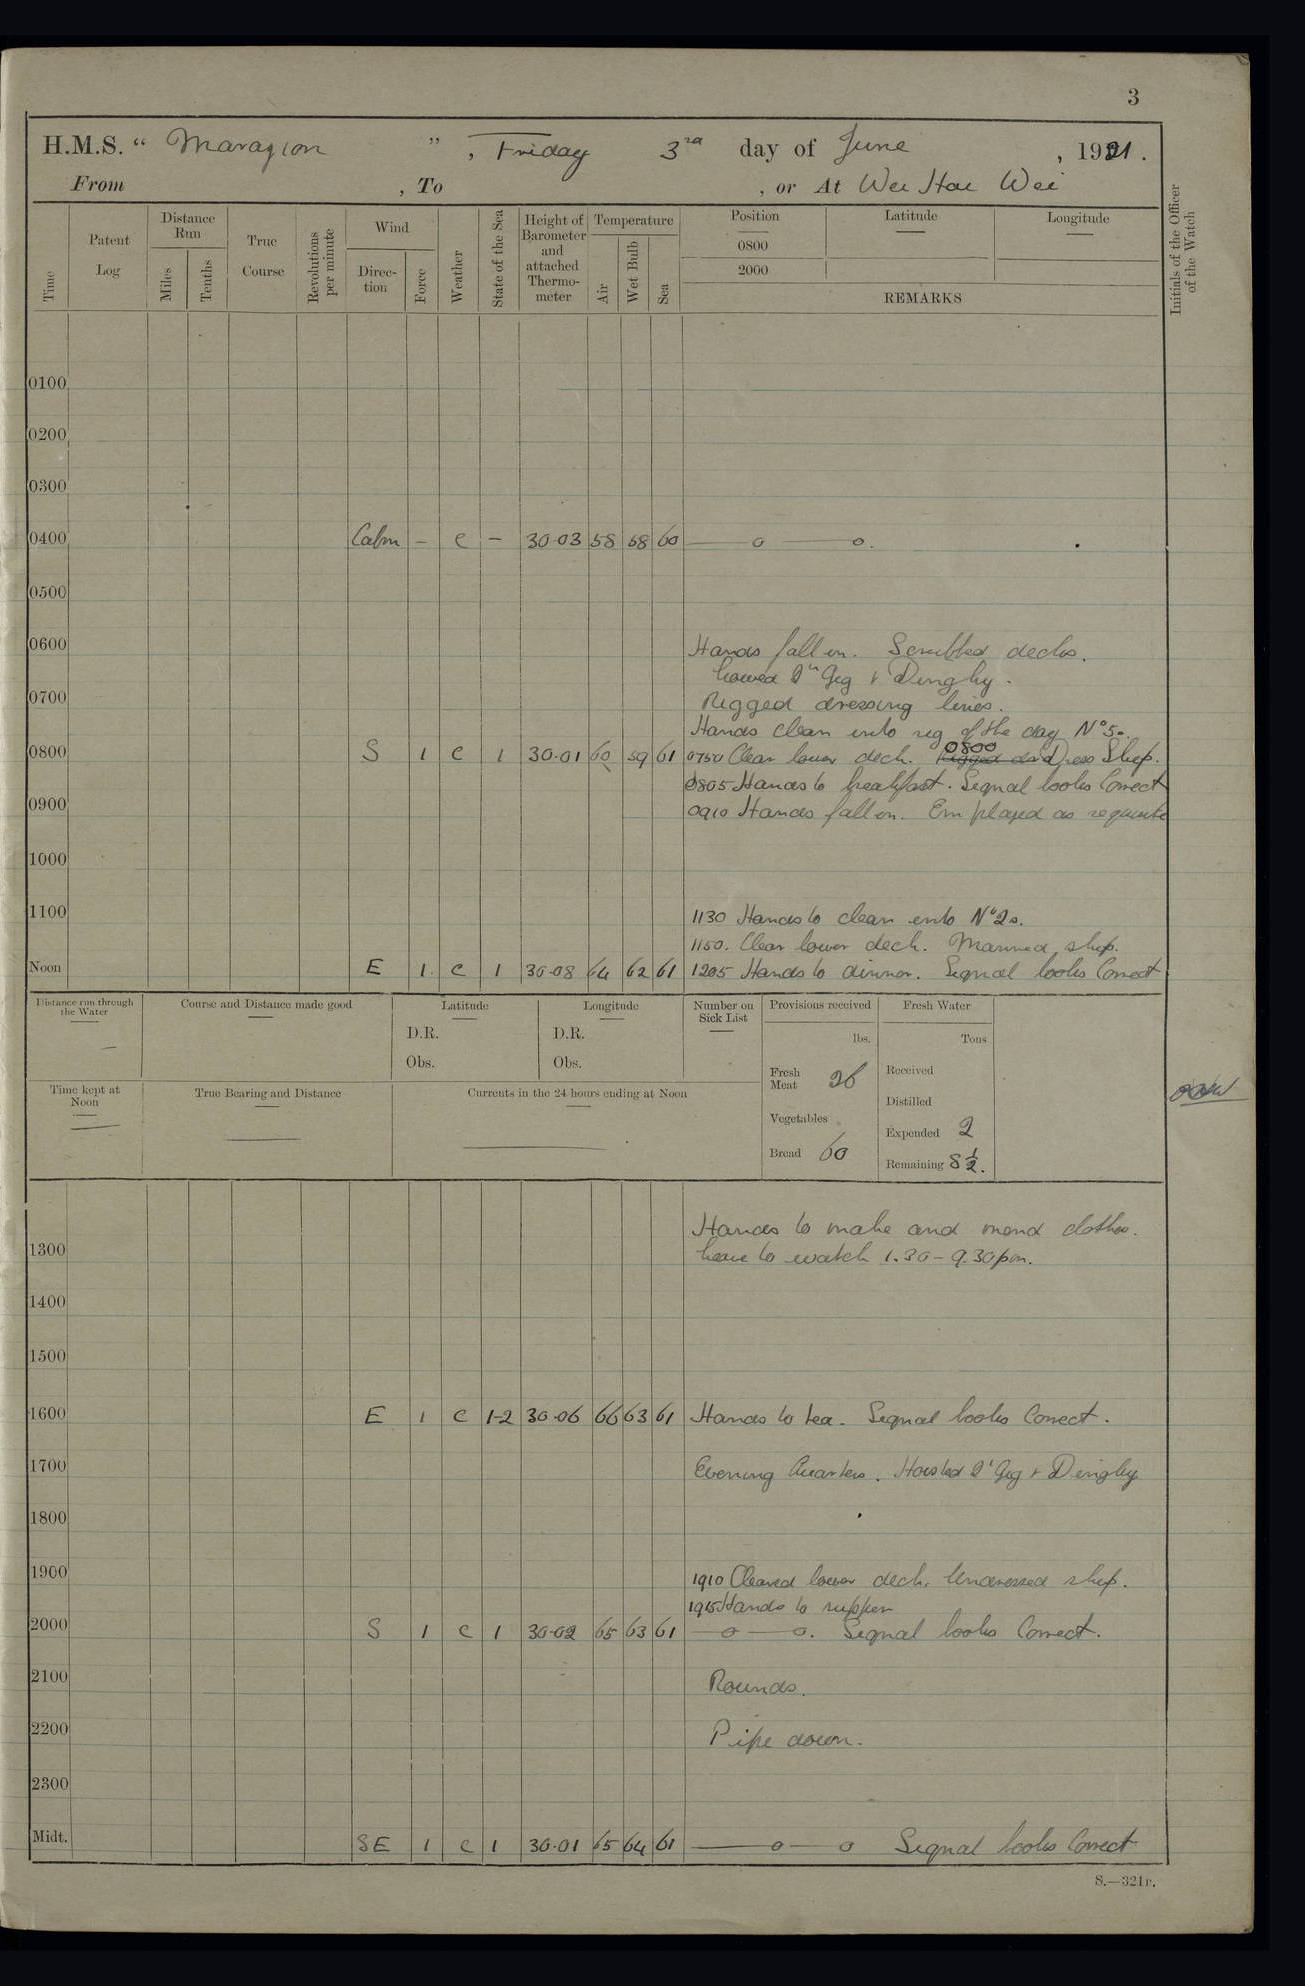 3
H.M.S. " Marazion ", Friday 3rd day of June , 1921.
From , To , or At Wei Hai Wei
Time
Patent Log
Distance Run
Miles
Tenths
True Course
Revolutions per minute
Wind
Direc-tion
Force
Weather
State of the Sea
Height of Barometer and attached Thermo-meter
Temperature
Air
Wet Bulb
Sea
Position
Latitude
Longitude
0800
2000
REMARKS
Initials of the Officer of the Watch
0100
0200
0300
0400 Calm – c – 30.03 58 58 60 — o — o.
0500
0600 Hands fall in. Scrubbed decks.
Gig & Dinghy.
0700 Rigged dressing lines.
Hands clean into rig of the day Nº 5.
0800 S 1 c 1 30.01 60 59 61 0750 Clear lower deck. 0800 Dress Ship.
0805 Hands to breakfast. Signal books Correct
0900 0910 Hands fall in. Employed as requisite
1000
1100 1130 Hands to clean into Nº 2s.
1150. Clear lower deck. Manned ship.
Noon E 1 c 1 30.08 64 62 61 1205 Hands to dinner. Signal books Correct
Distance run through the Water
Course and Distance made good
Latitude
D.R.
Obs.
Longitude
D.R.
Obs.
Number on Sick List
Provisions received
lbs.
Fresh Meat 26
Vegetables
Bread 60
Fresh Water
Tons
Received
Distilled
Expended 2
Remaining 8 1/2.
Time kept at Noon
True Bearing and Distance
Currents in the 24 hours ending at Noon
Hands to make and mend clothes.
1300 Leave to watch 1.30 – 9.30 pm.
1400
1500
1600 E 1 c 1-2 30.06 66 63 61 Hands to tea. Signal books Correct.
1700 Evening Quarters. Hoisted Gig & Dinghy
1800
1900 1910 Cleared lower deck. Undressed ship.
1915 Hands to supper
2000 S 1 c 1 30.02 65 63 61 — o — o. Signal books Correct.
2100 Rounds.
2200 Pipe down.
2300
Midt. SE 1 c 1 30.01 65 64 61 — o — o Signal books Correct
S.—321r.